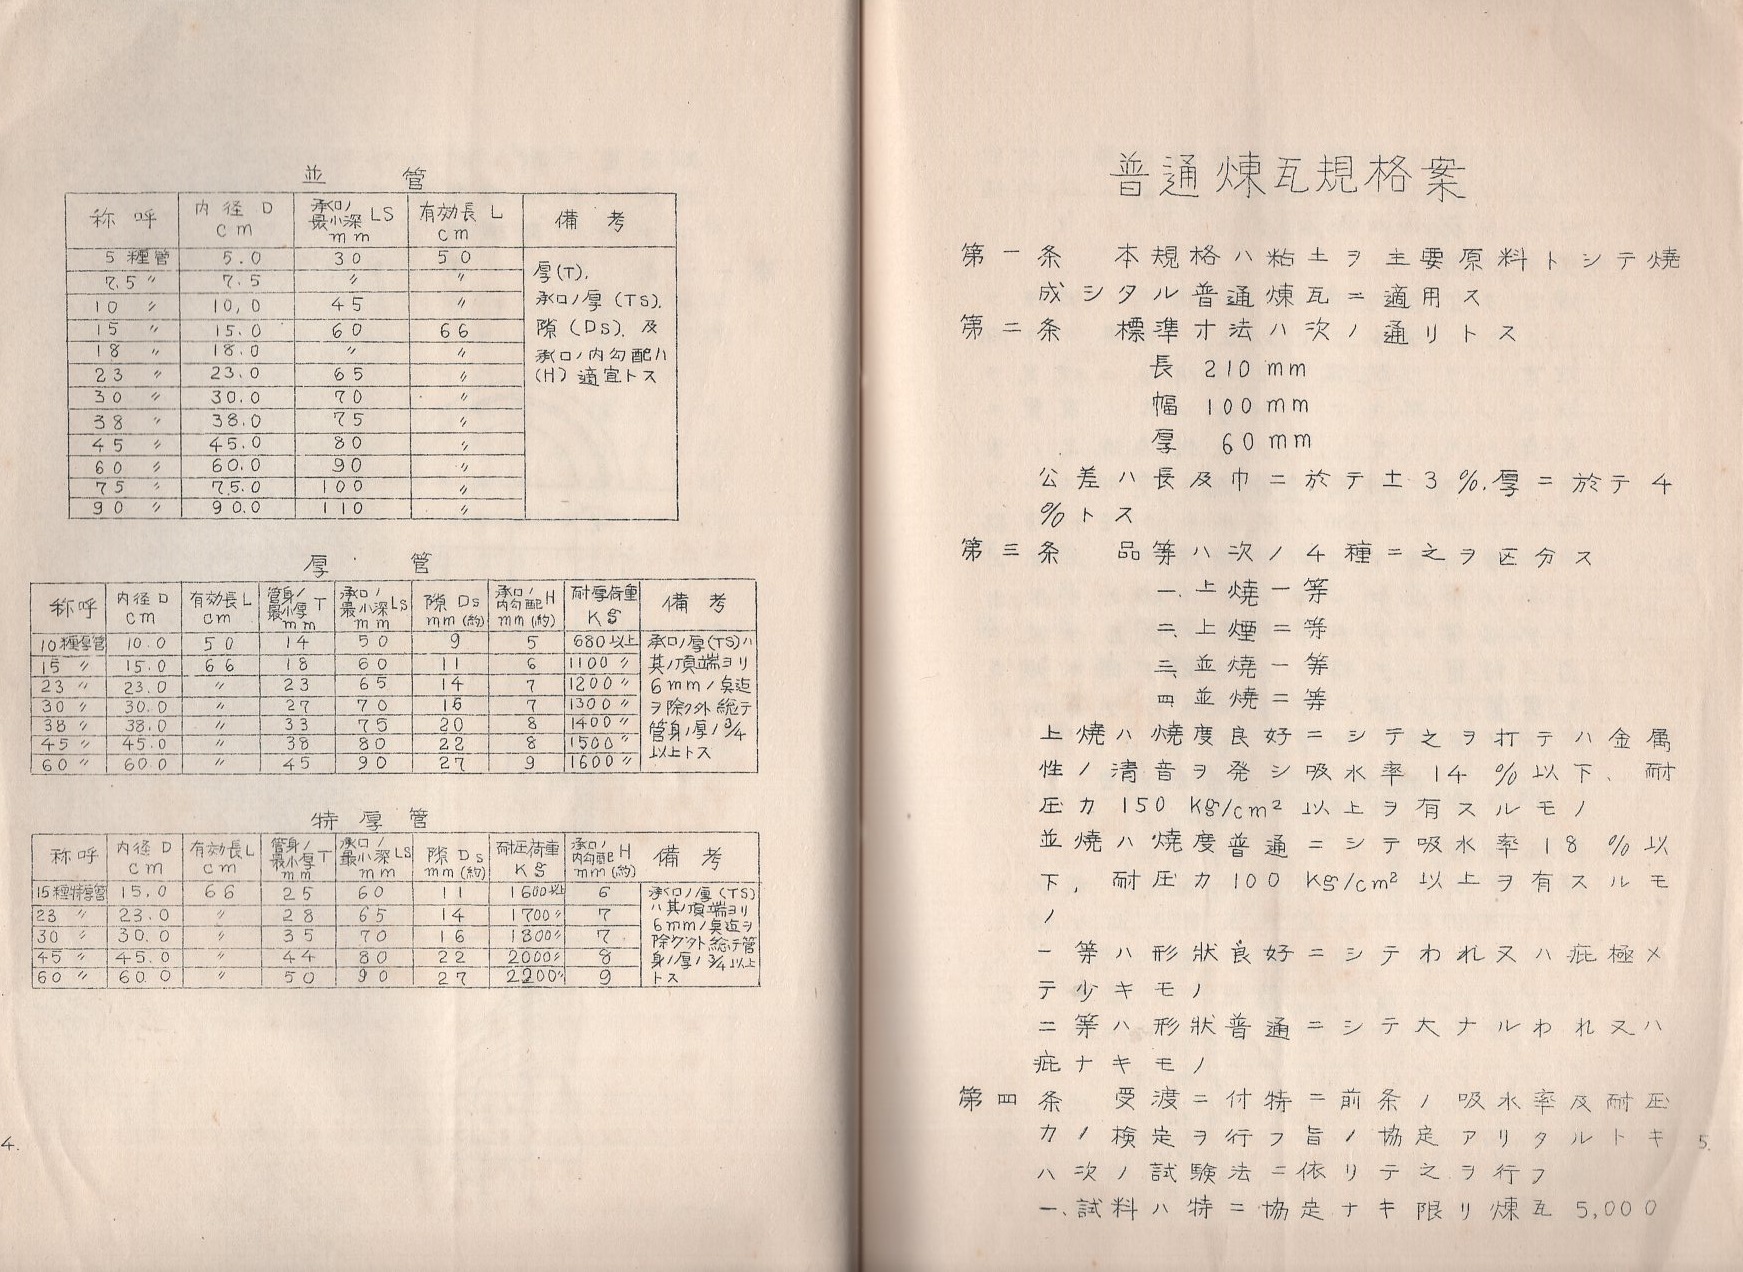 並管
称呼 内径 D cm 承口ノ最小深 LS mm 有効長 L cm 備考
5 種管 5.0 30 50
7.5 〃 7.5 〃 〃
10 〃 10,0 45 〃
15 〃 15.0 60 66
18 〃 18.0 〃 〃
23 〃 23.0 65 〃
30 〃 30.0 70 〃
38 〃 38.0 75 〃
45 〃 45.0 80 〃
60 〃 60.0 90 〃
75 〃 75.0 100 〃
90 〃 90.0 110 〃
厚(T),
承口ノ厚 (TS),
隙 (Ds), 及
承口ノ内勾配ハ
(H) 適宜トス
厚管
称呼 内径 D cm 有効長 L cm 管身ノ最小厚 T mm 承口ノ最小深 LS mm 隙 Ds mm (約) 承口ノ内勾配 H mm (約) 耐厚荷重 Kg 備考
10種厚管 10.0 50 14 50 9 5 680以上
15 〃 15.0 66 18 60 11 6 1100 〃
23 〃 23.0 〃 23 65 14 7 1200 〃
30 〃 30.0 〃 27 70 16 7 1300 〃
38 〃 38.0 〃 33 75 20 8 1400 〃
45 〃 45.0 〃 38 80 22 8 1500 〃
60 〃 60.0 〃 45 90 27 9 1600 〃
承口ノ厚(TS)ハ
其ノ頂端ヨリ
6mmノ奌迄
ヲ除ク外総テ
管身ノ厚ノ3/4
以上トス
特厚管
称呼 内径 D cm 有効長 L cm 管身ノ最小厚 T mm 承口ノ最小深 LS mm 隙 Ds mm (約) 耐圧荷重 Kg 承口ノ内勾配 H mm (約) 備考
15種特厚管 15.0 66 25 60 11 1600以上 6
23 〃 23.0 〃 28 65 14 1700 〃 7
30 〃 30.0 〃 35 70 16 1800 〃 7
45 〃 45.0 〃 44 80 22 2000 〃 8
60 〃 60.0 〃 50 90 27 2200 〃 9
承口ノ厚 (TS)
ハ其ノ頂端ヨリ
6mmノ奌迄ヲ
除ク外総テ管
身ノ厚ノ3/4以上
トス
4.
普通煉瓦規格案
第一条 本規格ハ粘土ヲ主要原料トシテ焼
成シタル普通煉瓦ニ適用ス
第二条 標準寸法ハ次ノ通リトス
長 210 mm
幅 100 mm
厚 60 mm
公差ハ長及巾ニ於テ±3%.厚ニ於テ4
%トス
第三条 品等ハ次ノ4種ニ之ヲ区分ス
一、上焼一等
二、上煙二等
三、並焼一等
四 並焼二等
上焼ハ焼度良好ニシテ之ヲ打テハ金属
性ノ清音ヲ発シ吸水率14%以下、耐
圧力150 Kg/cm² 以上ヲ有スルモノ
並焼ハ焼度普通ニシテ吸水率18%以
下, 耐圧力100 Kg/cm² 以上ヲ有スルモ
ノ
一等ハ形状良好ニシテわれ又ハ疵極メ
テ少キモノ
二等ハ形状普通ニシテ大ナルわれ又ハ
疵ナキモノ
第四条 受渡ニ付特ニ前条ノ吸水率及耐圧
力ノ検定ヲ行フ旨ノ協定アリタルトキ
ハ次ノ試験法ニ依リテ之ヲ行フ
一、試料ハ特ニ協定ナキ限リ煉瓦5,000
5.